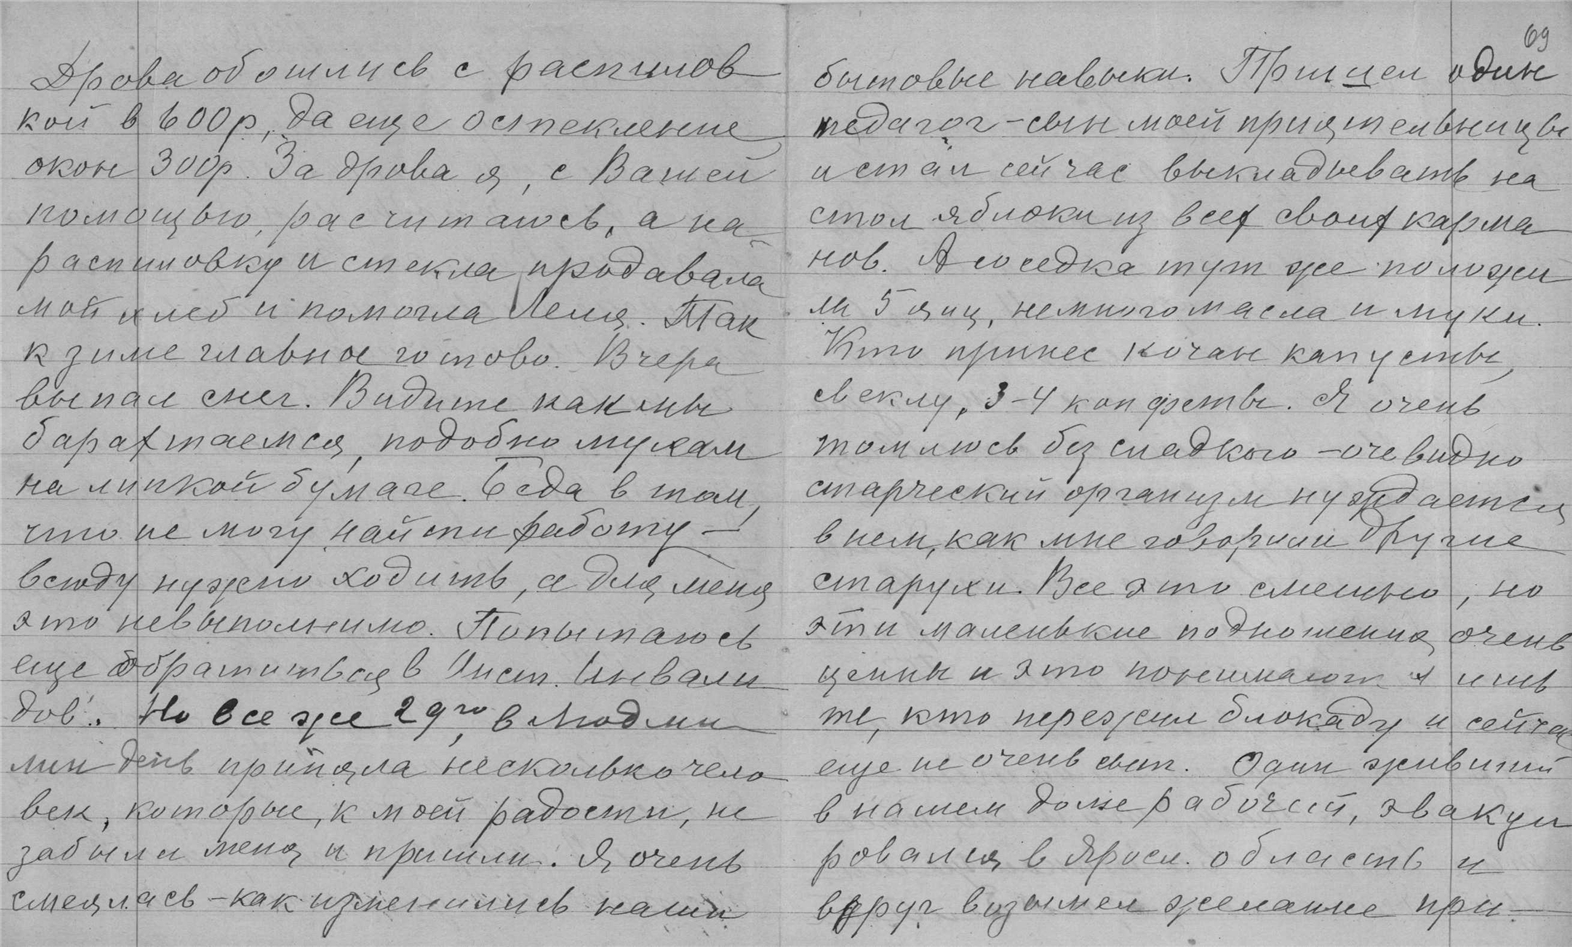 Дрова обошлись с распилов
кой в 600р, да еще остекление
окон 300р. За дрова я, с Вашей
помощью, расчитаюсь, а на
распиловку и стекла продавала
мой хлеб и помогла Леля. Так
к зиме главное готово. Вчера
выпал снег. Видите как мы
барахтаемся, подобно мухам
на липкой бумаге. Беда в том,
что не могу найти работу —
всюду нужно ходить, а для меня
это невыполнимо. Попытаюсь
еще обратиться в Инст. Инвали
дов. Но все же 29го, в Людми
лин день приняла несколько чело
век, которые, к моей радости, не
забыли меня и пришли. Я очень
смеялась – как изменились наши
69
бытовые навыки. Пришел один
педагог – сын моей приятельницы
и стал сейчас выкладывать на
стол яблоки из всех своих карма
нов. А соседка тут же положи
ла 5 яиц, немного масла и муки.
Кто принес кочан капусты,
свеклу, 3-4 конфеты. Я очень
томлюсь без сладкого – очевидно
старческий организм нуждается
в нем, как мне говорили другие
старухи. Все это смешно, но
эти маленькие подношения очень
ценны и это понимают лишь
те, кто пережил блокаду и сейчас
еще не очень сыт. Один живший
в нашем доме рабочий, эвакуи
ровался в Яросл. область и
вдруг возымел желание при–